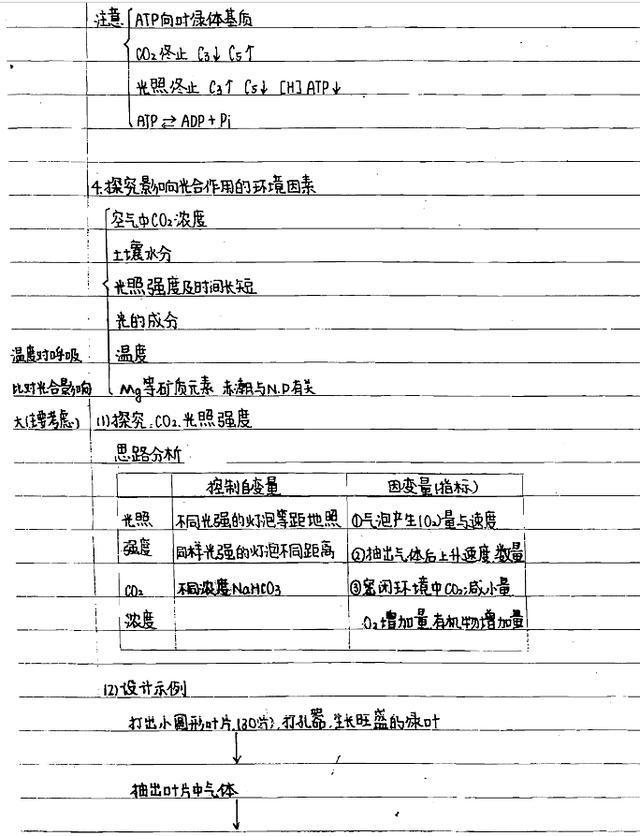 注意 ATP向叶绿体基质
CO2终止 C3↓ C5↑
光照终止 C3↑ C5↓ [H]ATP↓
ATP ⇄ ADP + Pi
4.探究影响光合作用的环境因素
空气中CO2浓度
土壤水分
光照强度及时间长短
光的成分
温度
Mg等矿质元素 赤潮与N.P有关
温度对呼吸
比对光合影响
大(主要考虑)
(1)探究.CO2.光照强度
思路分析
控制自变量 因变量(指标)
光照 不同光强的灯泡等距地照 ①气泡产生(O2)量与速度
强度 同样光强的灯泡不同距离 ②抽出气体后上升速度.数量
CO2 不同浓度NaHCO3 ③密闭环境中CO2减小量
浓度 O2增加量.有机物增加量
(2)设计示例
打出小圆形叶片.(30片).打孔器.生长旺盛的绿叶
↓
抽出叶片中气体
↓